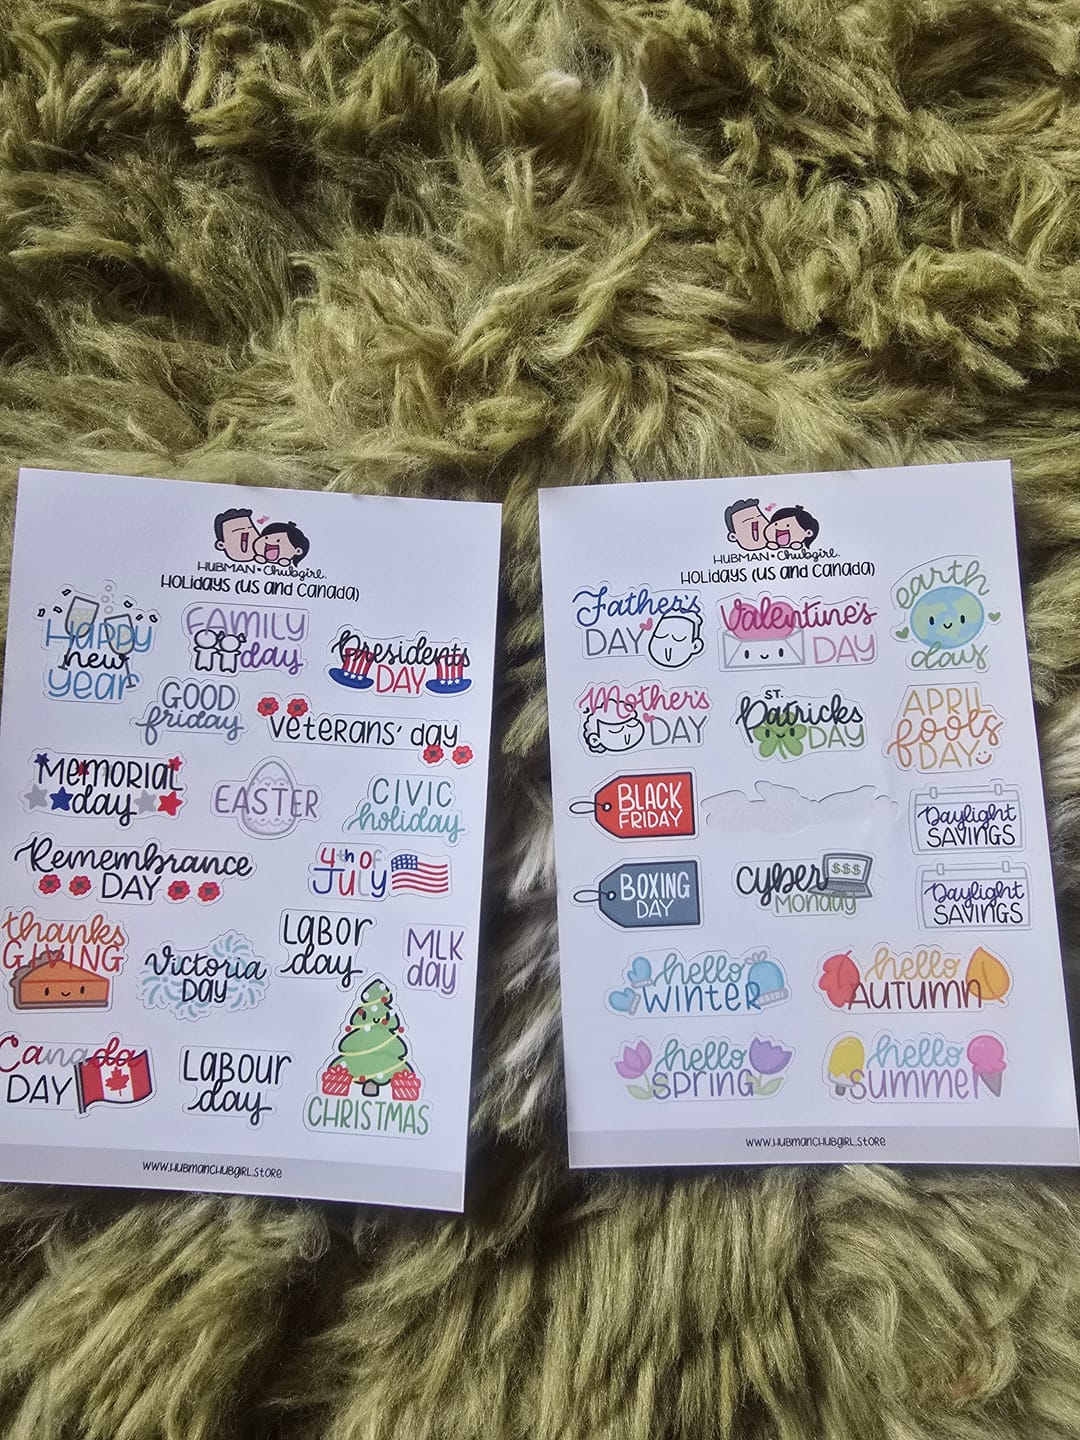 HUBMAN • Chubgirl.
HOLidAYS (US AND CANAdA)
HAPPY
new
year
FAMILY
day
Presidents
DAY
GOOD
friday
Veterans' day
MEMORIAL
day
EASTER
CIVIC
holiday
Remembrance
DAY
4th OF
JULY
thanks
GIVING
Victoria
DAY
LABOR
day
MLK
day
Canada
DAY
LABOUR
day
CHRISTMAS
WWW.HUBMANCHUBGIRL.STORE
HUBMAN • Chubgirl.
HOLidAYS (US AND CANAdA)
Father's
DAY
Valentine's
DAY
earth
day
Mother's
DAY
ST.
Patricks
DAY
APRIL
fools
DAY
BLACK
FRIDAY
Daylight
SAVINGS
BOXING
DAY
cyber
$$$
MONDAY
Daylight
SAVINGS
hello
WINTER
hello
AUTUMN
hello
SPRING
hello
summer
WWW.HUBMANCHUBGIRL.STORE